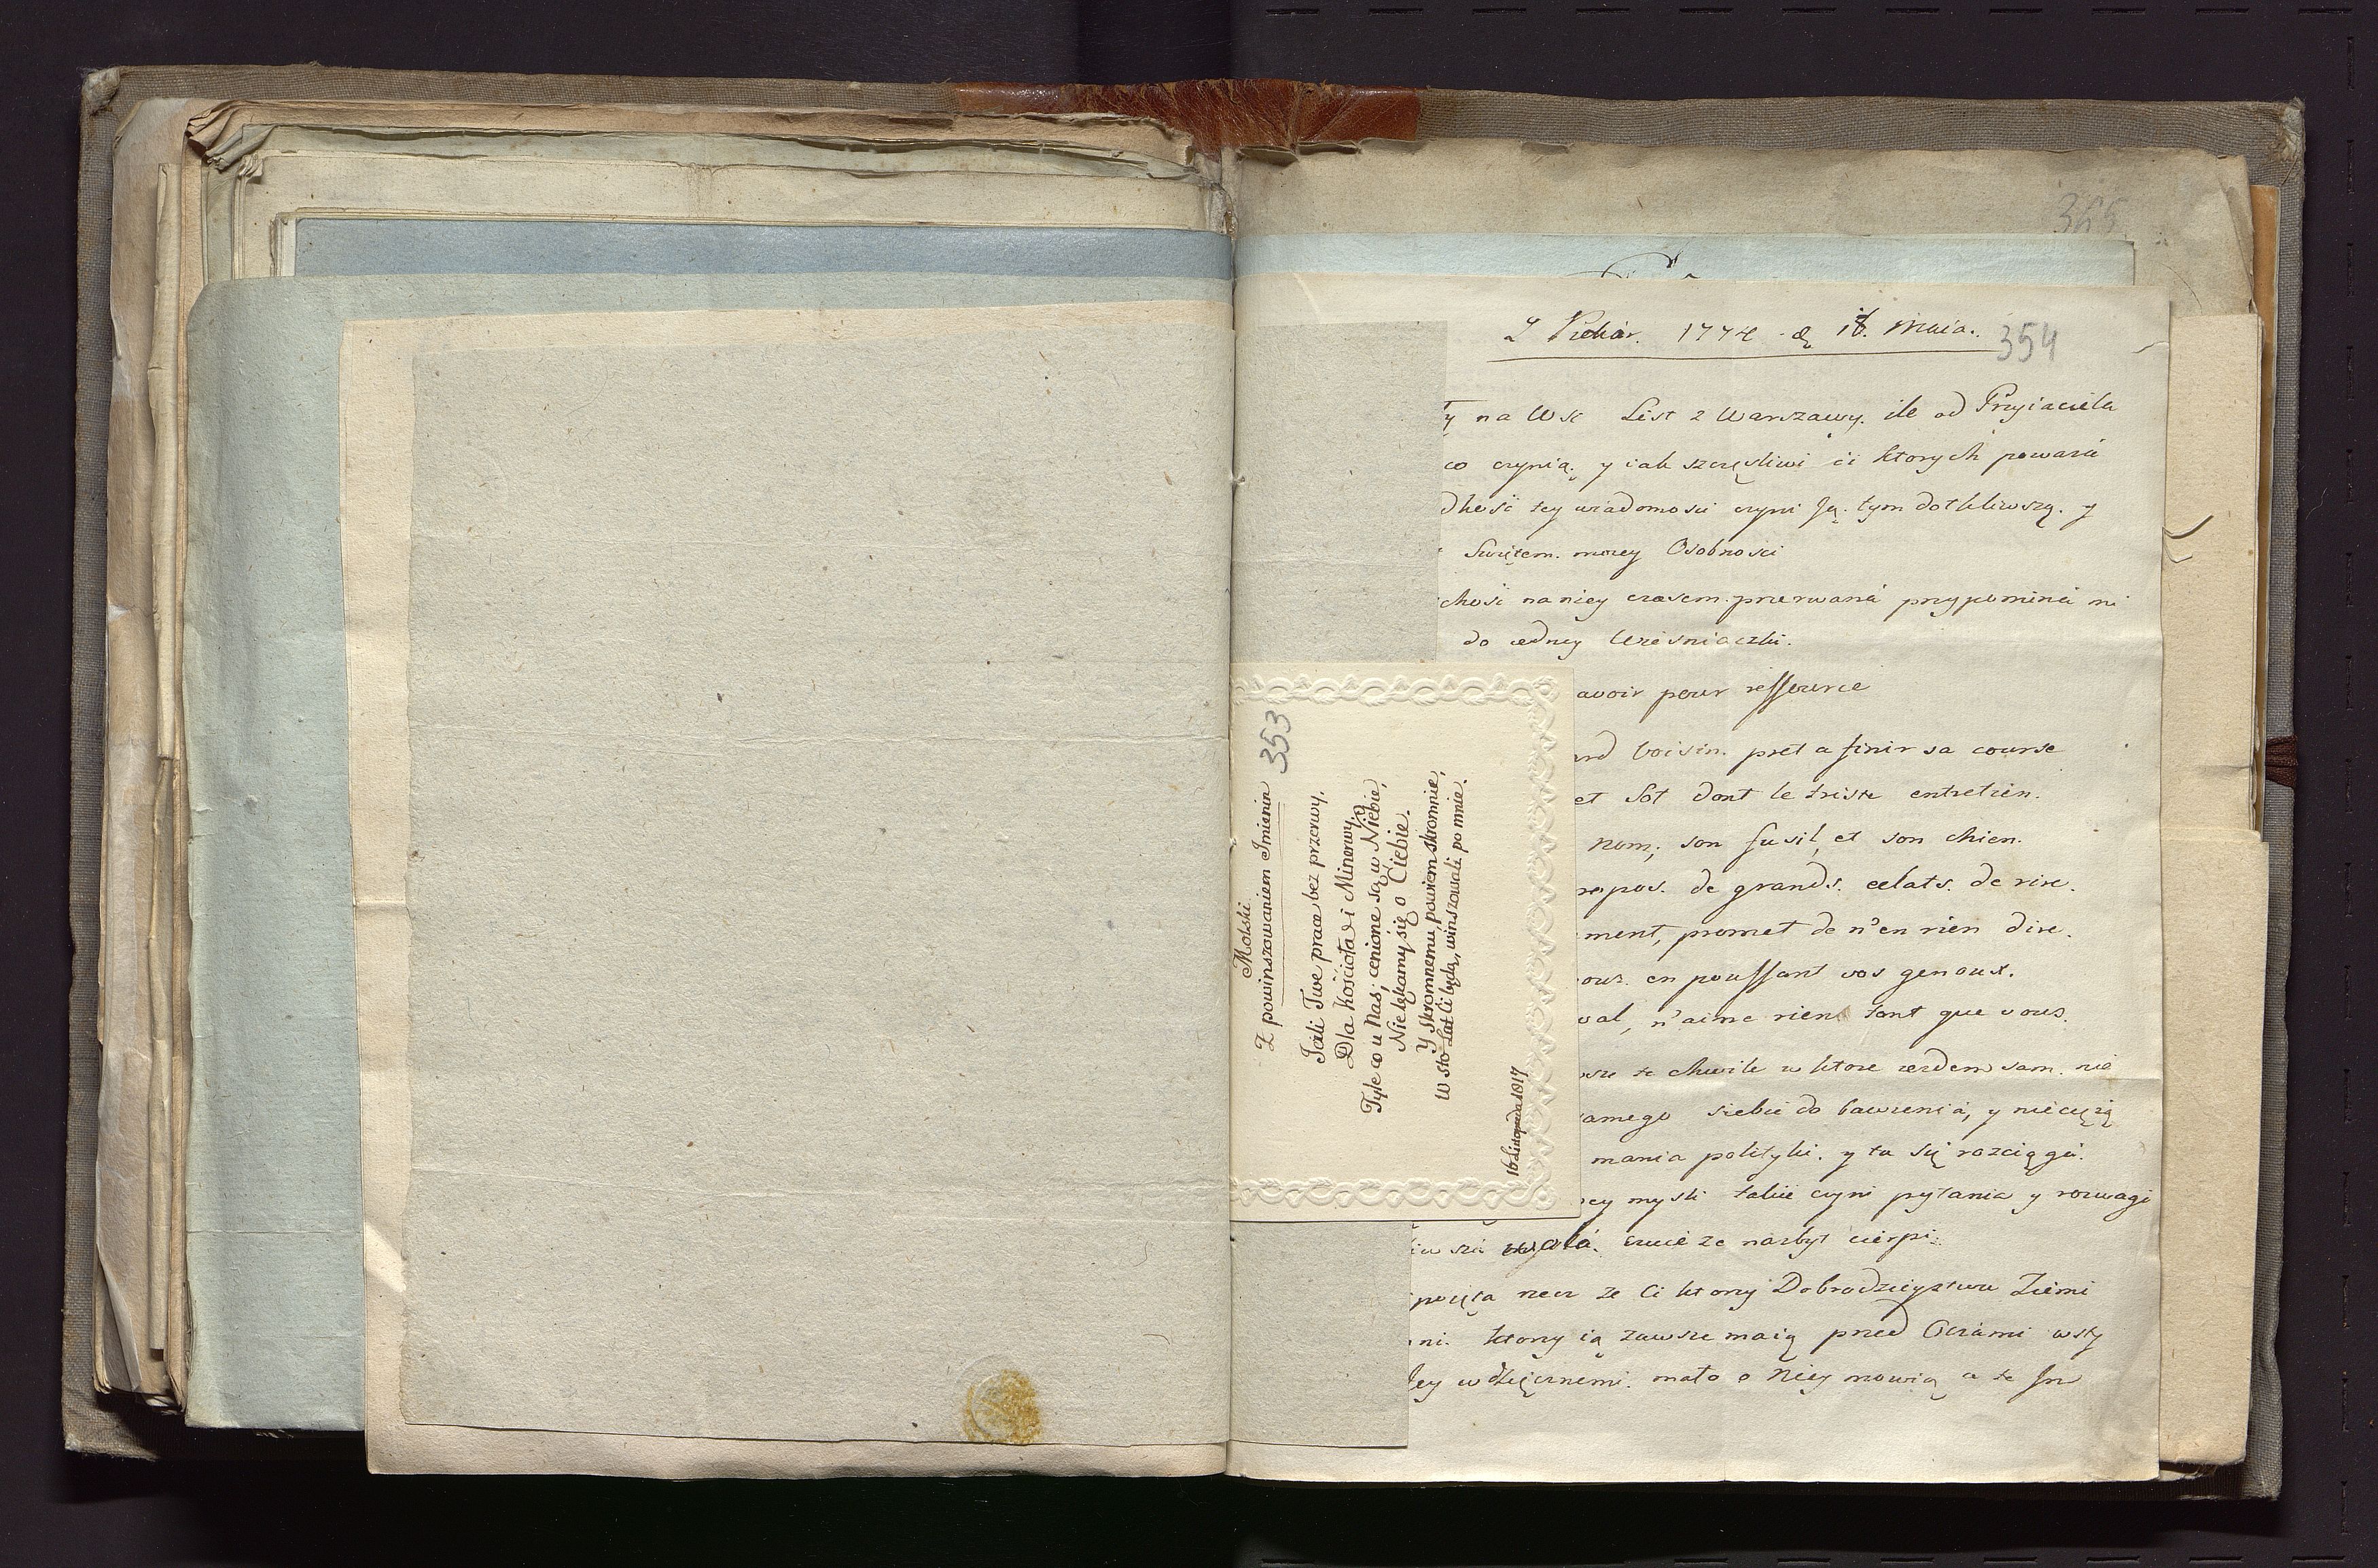 355
354
1774 Maia.
na List z Warszawy. ile od Przyiaciela
co czynią. y iak szczęsliwi ci ktorych powaza
tey wiadomosci czyni Ją. tym dotkliwszą. y
Osobnosci
na niey czasem przerwana przypomina mi
do iedney Wiesniaczki.
avoir pour ressource
voisin. pret a finir sa course
et Sot dont le triste entretien.
nom; son fusil, et son chien.
de grands. eclats. de rire.
ment, promet de n'en rien dire.
en poussant vos genoux.
n'aime rien tant que vous.
te chwile w ktore sam. nie
amego siebie do bawienia, y nieciężą
mania polityki. y tu się rozciąga.
mysli takie czyni pytania y rozwagi
czuie ze nazbyt cierpi.
rzecz ze Ci ktorzy Dobrodzieystwa Ziemi
ktorzy ią zawsze maią przed Oczami
wdzięcznemi. mało o Niey mowią a te
353
Molski
Z powinszowaniem Imienin
Jeśli Twe prace bez przerwy,
Dla Kościoła i Minerwy,
Tyle co u Nas; cenione są w Niebie,
Nie lękamy się o Ciebie.
Y Skromnemu, powiem skromnie,
W sto Lat Ci będą, winszowali po mnie.
16 Listopada 1817